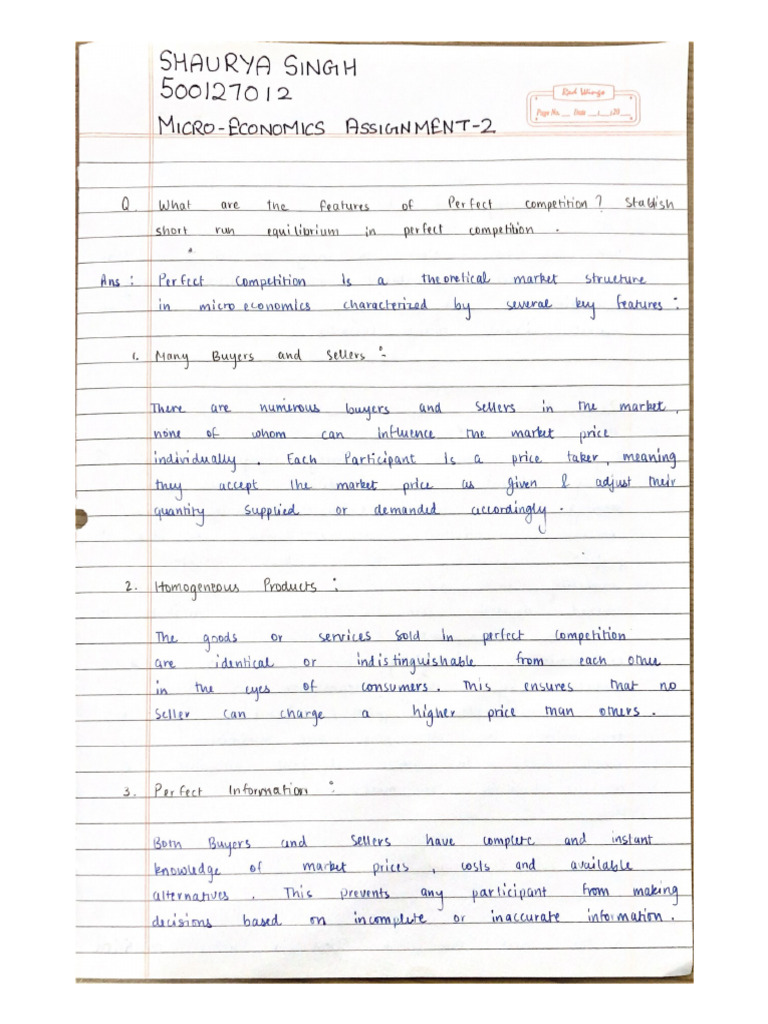 SHAURYA SINGH
500127012
MICRO-ECONOMICS ASSIGNMENT-2
Red Wings
Page No. Date / /20
Q. What are the features of Perfect competition? Stablish
short run equilibrium in perfect competition.
Ans: Perfect Competition is a theoretical market structure
in micro economics characterized by several key features:
1. Many Buyers and Sellers:-
There are numerous buyers and sellers in the market,
none of whom can influence the market price
individually. Each Participant is a price taker, meaning
they accept the market price as given & adjust their
quantity supplied or demanded accordingly.
2. Homogeneous Products:
The goods or services sold in perfect competition
are identical or indistinguishable from each other
in the eyes of consumers. This ensures that no
seller can charge a higher price than others.
3. Perfect Information:
Both Buyers and Sellers have complete and instant
knowledge of market prices, costs and available
alternatives. This prevents any participant from making
decisions based on incomplete or inaccurate information.